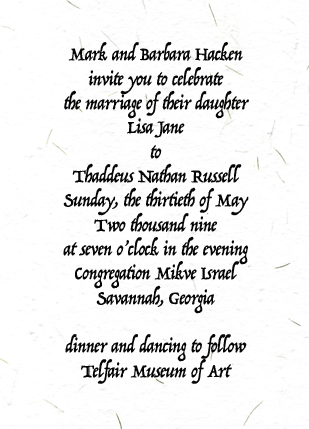 Mark and Barbara Hacken
invite you to celebrate
the marriage of their daughter
Lisa Jane
to
Thaddeus Nathan Russell
Sunday, the thirtieth of May
Two thousand nine
at seven o'clock in the evening
Congregation Mikve Israel
Savannah, Georgia
dinner and dancing to follow
Telfair Museum of Art